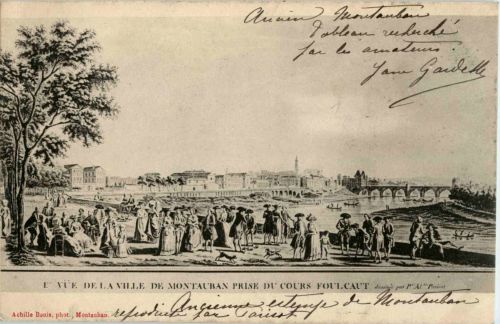 Ancien Montauban
Tableau recherché
par les amateurs.
Jane Gardelle
Iere VUE DE LA VILLE DE MONTAUBAN PRISE DU COURS FOULCAUT dessinée par
Achille Bouis, phot., Montauban.
Ancienne estampe de Montauban
reproduite par Parisot